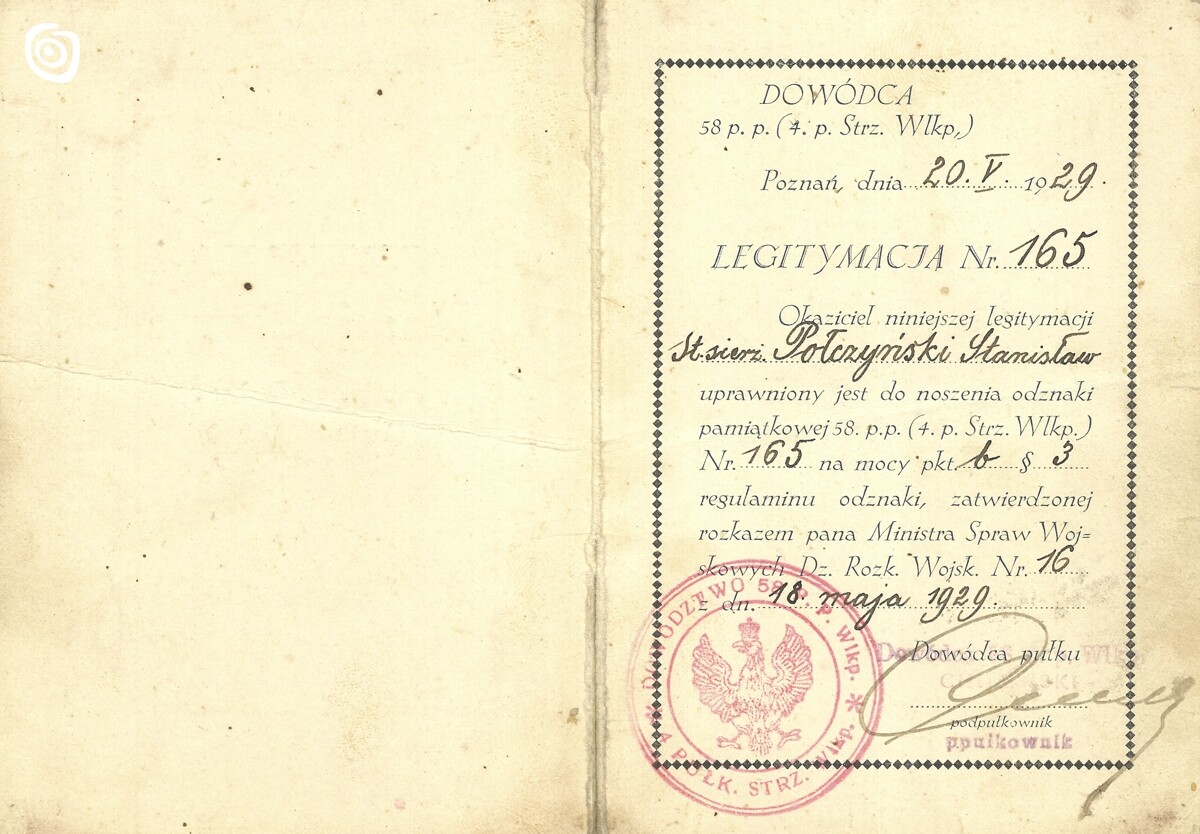 DOWÓDCA
58 p. p. (4. p. Strz. Wlkp,)
Poznań, dnia 20. V. 1929.
LEGITYMACJA Nr. 165
Okaziciel niniejszej legitymacji
St. sierż. Połczyński Stanisław
uprawniony jest do noszenia odznaki
pamiątkowej 58. p.p. (4. p. Strz. Wlkp.)
Nr. 165 na mocy pkt. b § 3
regulaminu odznaki, zatwierdzonej
rozkazem pana Ministra Spraw Woj=
skowych Dz. Rozk. Wojsk. Nr. 16
z dn. 18. maja 1929.
DOWÓDZTWO 58 P. P. Wlkp.
4 PUŁK. STRZ. Wlkp.
Dowódca pułku
podpułkownik
ppułkownik